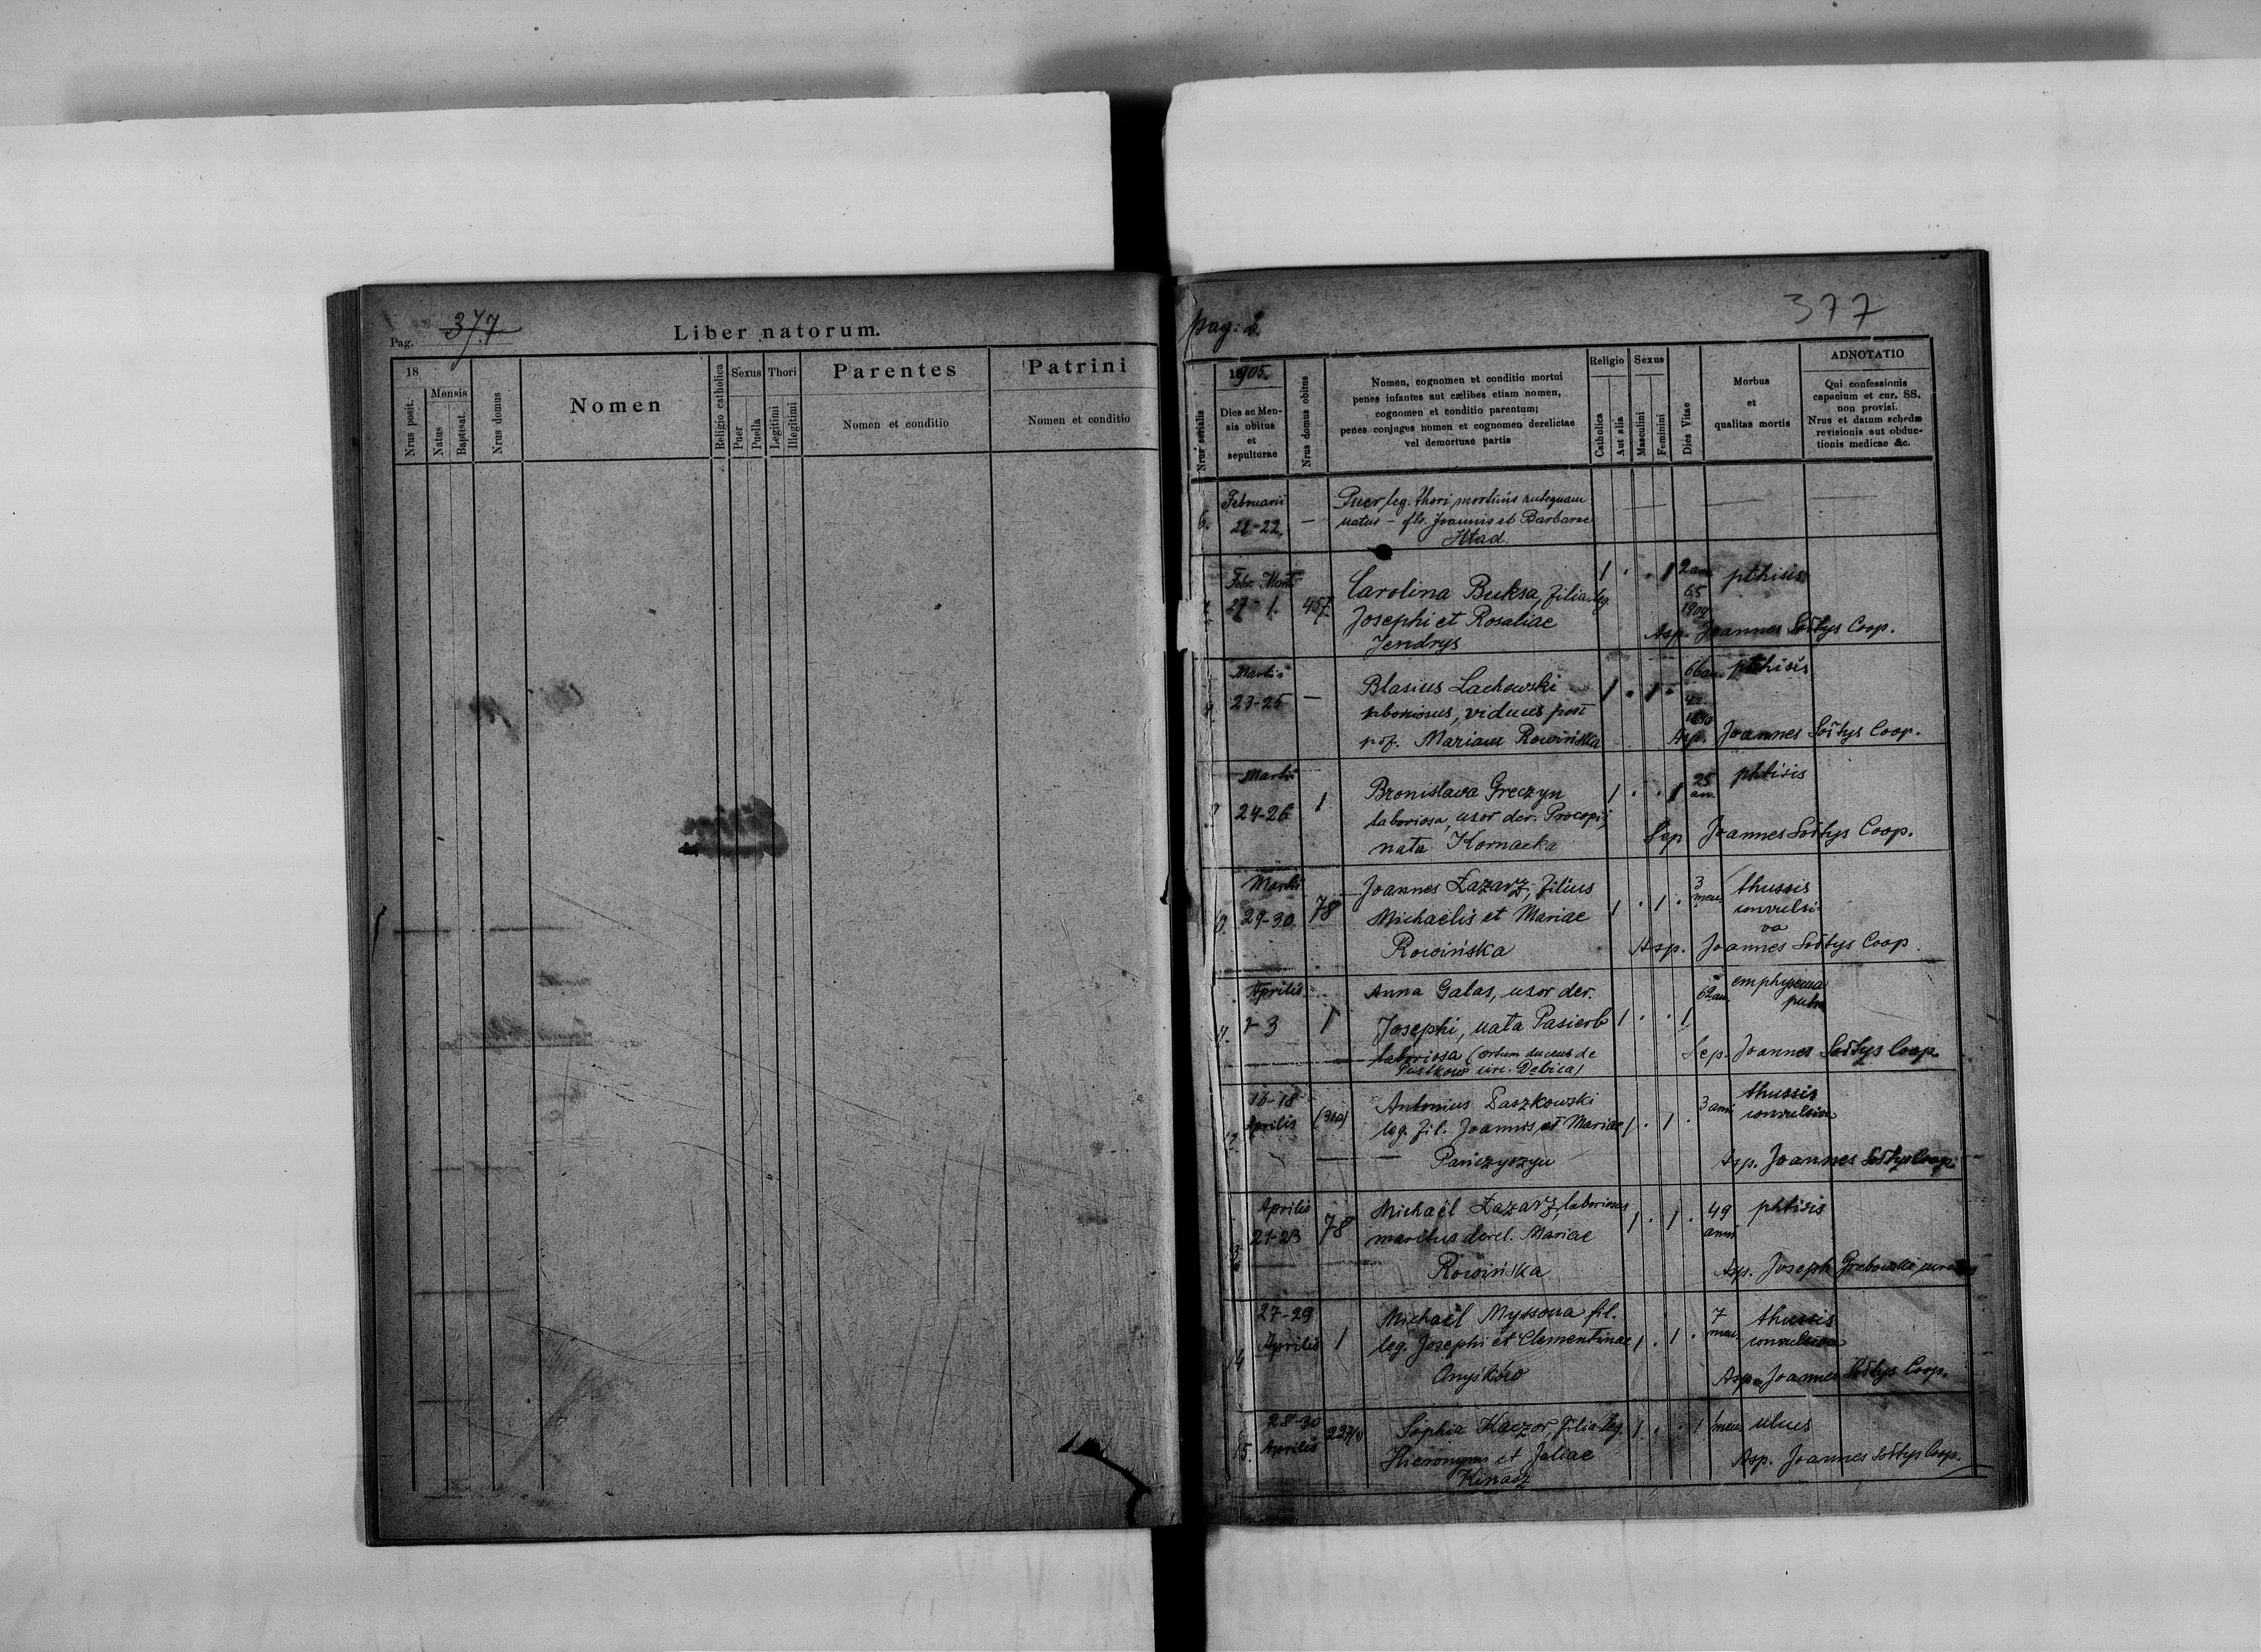 Pag. 377
Liber natorum.
18
Nrus posit.
Mensis
Natus
Baptisat.
Nrus domus
Nomen
Religio catholica
Sexus
Puer
Puella
Thori
Legitimi
Illegitimi
Parentes
Nomen et conditio
Patrini
Nomen et conditio
pag: 2.
377
Nrus serialis
1905.
Dies ac Men-
sis obitus
et
sepulturae
Nrus domus obitus
Nomen, cognomen et conditio mortui
penes infantes aut cælibes etiam nomen,
cognomen et conditio parentum;
penes conjuges nomen et cognomen derelictae
vel demortuae partis
Religio
Catholica
Aut alia
Sexus
Masculini
Feminini
Dies Vitae
Morbus
et
qualitas mortis
ADNOTATIO
Qui confessionis
capacium et cur. SS.
non provisi.
Nrus et datum schedæ
revisionis aut obduc-
tionis medicae &c.
6. Februarii 21-22 — Puer leg. thori mortuus antequam
natus - fls. Joannis et Barbarae
Febr. Marti 27 1. 457 Carolina Buksa, filia leg. 1 . . 1 2 ann pthisis
Josephi et Rosaliae
Jendrys
Asp. Joannes Sołtys Coop.
Martii 23-25 — Blasius Lachowski 1 . 1 . 66 an. pthisis
laboriosus, viduus post
Marianna Rowińska
Asp. Joannes Sołtys Coop.
Martii 24-26 1 Bronislava Greczyn 1 . . 1 25 an. phtisis
laboriosa, uxor der. Procopii,
nata Kornacka
Sep Joannes Sołtys Coop.
10. Martii 29-30 78 Joannes Łazarz, filius 1 . 1 . 3 men. thussis
Michaelis et Mariae convulsi-
va
Rowińska
Asp. Joannes Sołtys Coop.
11. Aprilis 1-3 1 Anna Galas, uxor der. 62 an. emphysema
Josephi, nata Pasierb 1 . . 1
laboriosa (ortum ducens de
Pustków circ. Dębica)
Sep. Joannes Sołtys Coop.
12. 16-18 Aprilis (310) Antonius Daszkowski 3 anni thussis
leg. fil. Joannis et Mariae 1 . 1 . convulsiva
Asp. Joannes Sołtys Coop.
13. Aprilis 21-23 78 Michaël Łazarz, laboriosus 1 . 1 . 49 anni phtisis
maritus derel. Mariae
Rowińska
Asp. Joseph Grabowski
14 27-29 Aprilis 1 Michaël Myssona fil. 7 men. thussis
leg. Josephi et Clementinae 1 . 1 . convulsiva
Onyśków
Asp. Joannes Sołtys Coop.
15. 28-30 Aprilis Sophia Kaczor, filia leg. 1 . . 1 men. ulcus
Hieronymi et Juliae
Kinasz
Asp. Joannes Sołtys Coop.